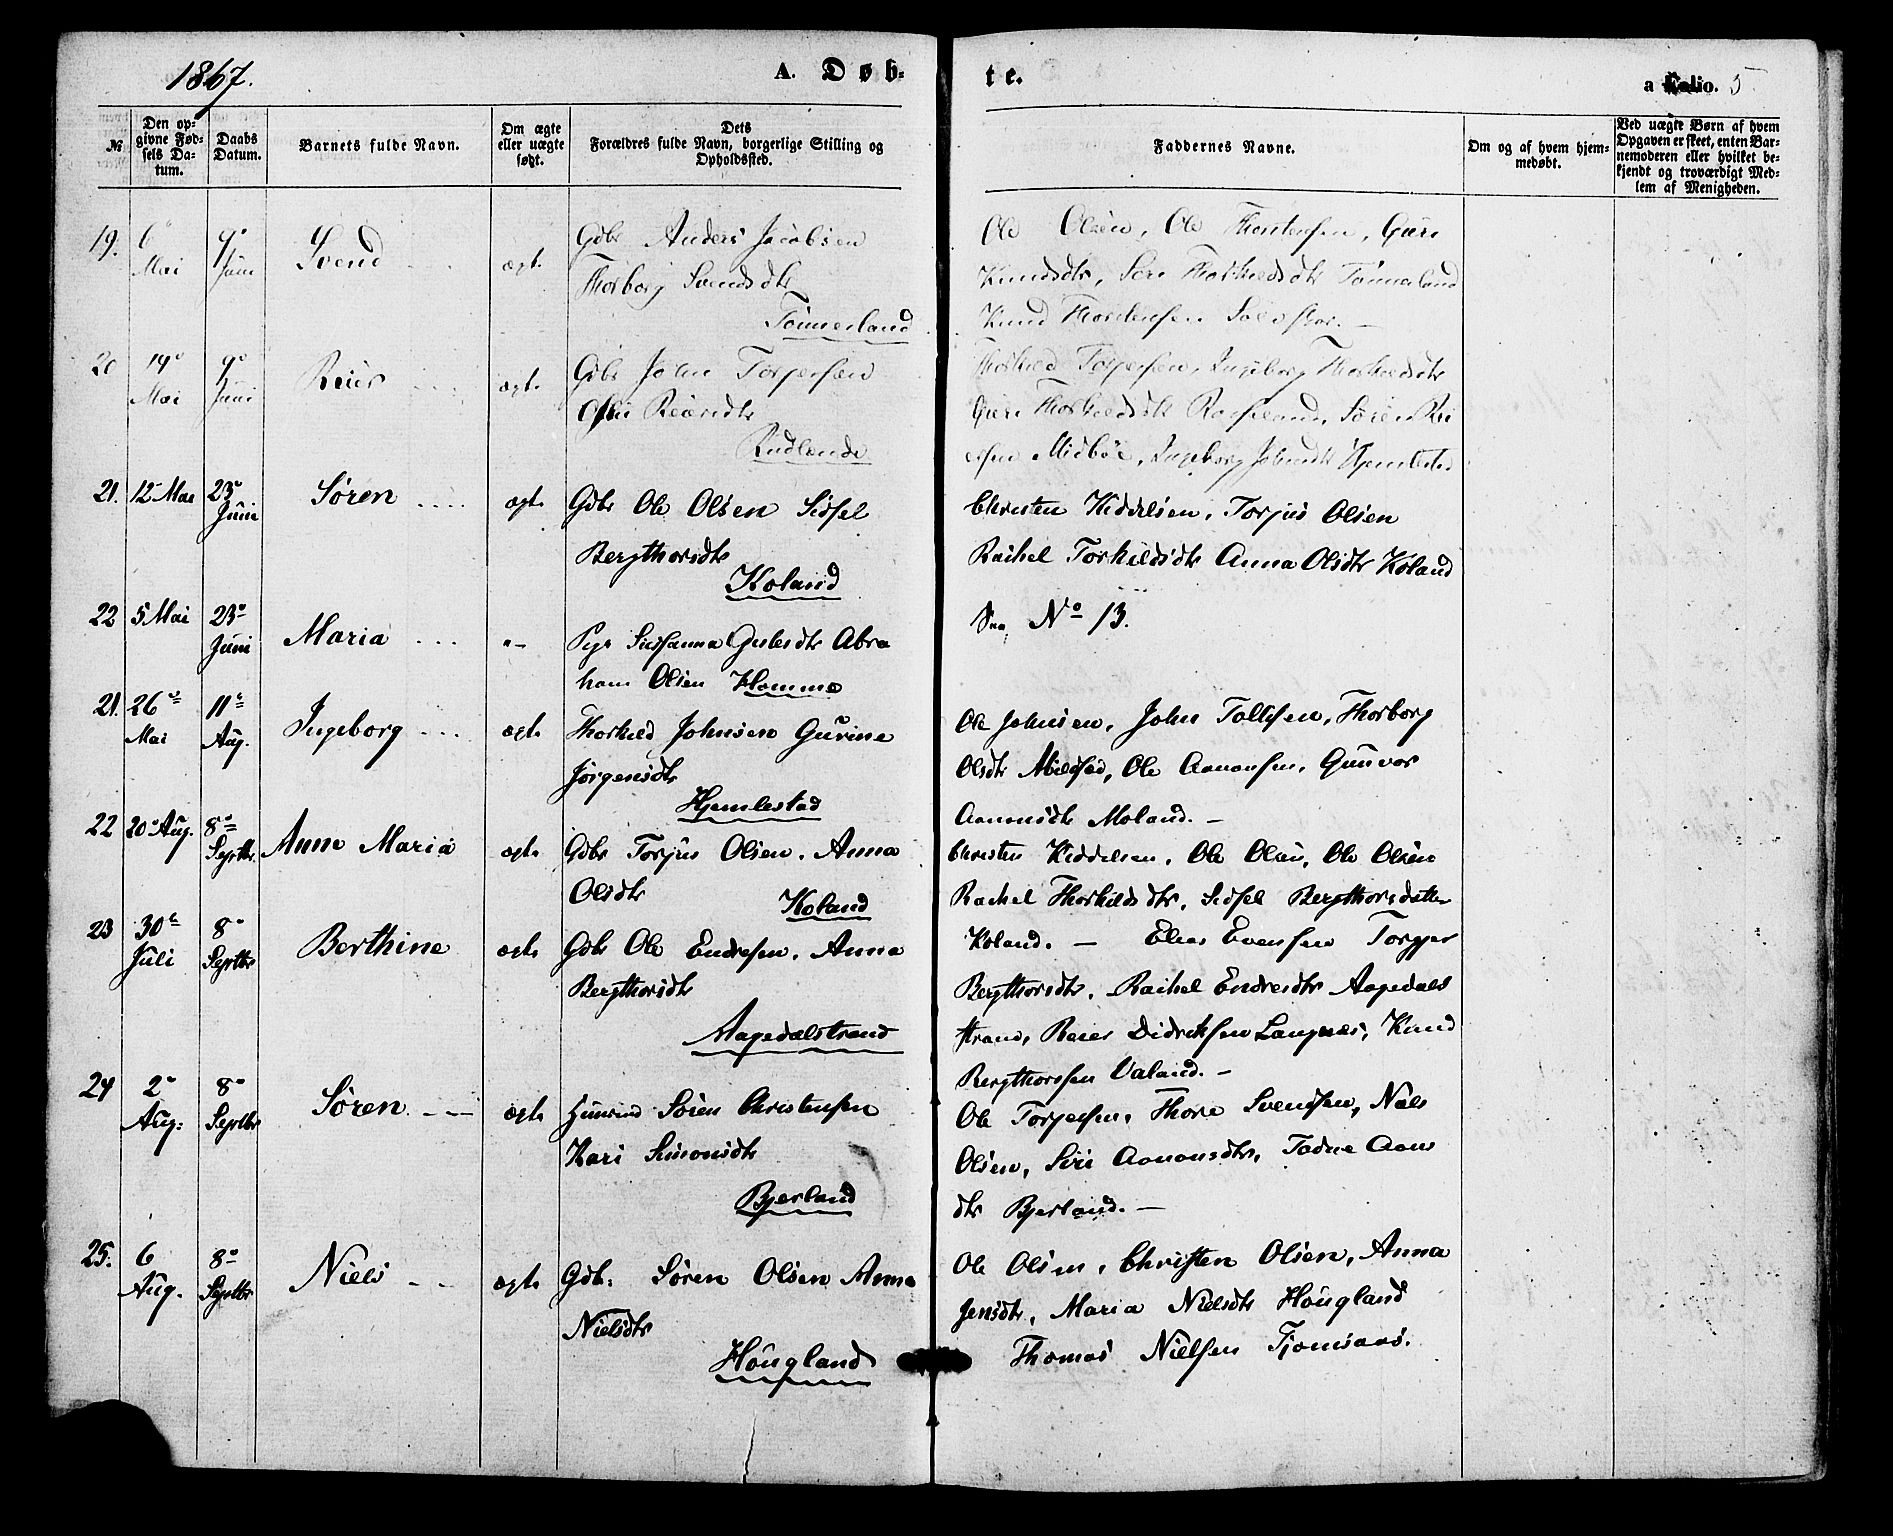 1867.
A. Døb-
te.
a Folio. 5
№
Den op-
givne Fød-
sels Da-
tum.
Daabs
Datum.
Barnets fulde Navn.
Om ægte
eller uægte
født.
Dets
Forældres fulde Navn, borgerlige Stilling og
Opholdssted.
Faddernes Navne.
Om og af hvem hjem-
medøbt.
Ved uægte Børn af hvem
Opgaven er skeet, enten Bar-
nemoderen eller hvilket be-
kjendt og troværdigt Med-
lem af Menigheden.
19. 6 Mai 9 Juni Svend ægt.
Gdbr Anders Jacobsen
Thorborg Svendsdtr
Tonnesland
Ole Olsen, Ole Thorstensen, Guri
Knudsdtr, Siri Thorkildsdtr Tonnesland
Knud Thorstensen
20 19 Mai 9 Juni Reier ægt.
Gdbr John Torjersen
Reiersdtr
Rudlende
Thorkild Torjersen, Ingeborg Thorkildsdtr
Guri Thorkildsdtr Søren Rei
ersen Midbøe, Ingeborg Johnsdtr Hjemlestad
21. 12 Mai 23 Juni Søren ægt.
Gdbr Ole Olsen Sidsel
Bergthorsdtr
Koland
Christen Kiddelsen, Torjus Olsen
Rachel Torkildsdtr Anna Olsdtr Koland
22 5 Mai 23 Juni Maria "–
Pige Susanna Abra
ham Olsen Homme
No 13.
21. 26 Mai 11 Aug. Ingeborg ægt.
Thorkild Johnsen Gurine
Jørgensdtr
Hjemlestad
Ole Johnsen, John Tollefsen, Thorborg
Olsdtr Ole Aanonsen, Gunvor
Aanonsdtr Moland. –
22 20 Aug. 8 Septbr. Anne Maria ægt.
Gdbr Torjus Olsen, Anna
Olsdtr
Koland
Christen Kiddelsen, Ole Olsen, Ole Olsen
Rachel Thorkildsdtr, Sidsel Bergthorsdatter
Koland. –
23 30 Juli 8 Septbr Berthine ægt.
Gdbr Ole Endresen, Anna
Bergthorsdtr
Aagedalstrand
Elias Evensen Torger
Bergthorsdtr, Rachel Endresdtr Aagedals
strand, Reier Didriksen Langnæs, Knud
Bergthorssen Valand. –
24 2 Aug: 8 Septbr Søren ægt.
Søren Christensen
Kari Simonsdtr
Bjerland
Ole Torjersen, Thore Svendsen, Niels
Olsen, Siri Aanonsdtr, Tadne Aans
dtr Bjerland. –
25. 6 Aug. 8 Septbr Niels ægt.
Gdb: Søren Olsen Anna
Nielsdtr
Høugland
Ole Olsen, Christen Olsen, Anna
Jensdtr, Maria Nielsdtr Høugland
Thomas Nielsen Tjomsaas.